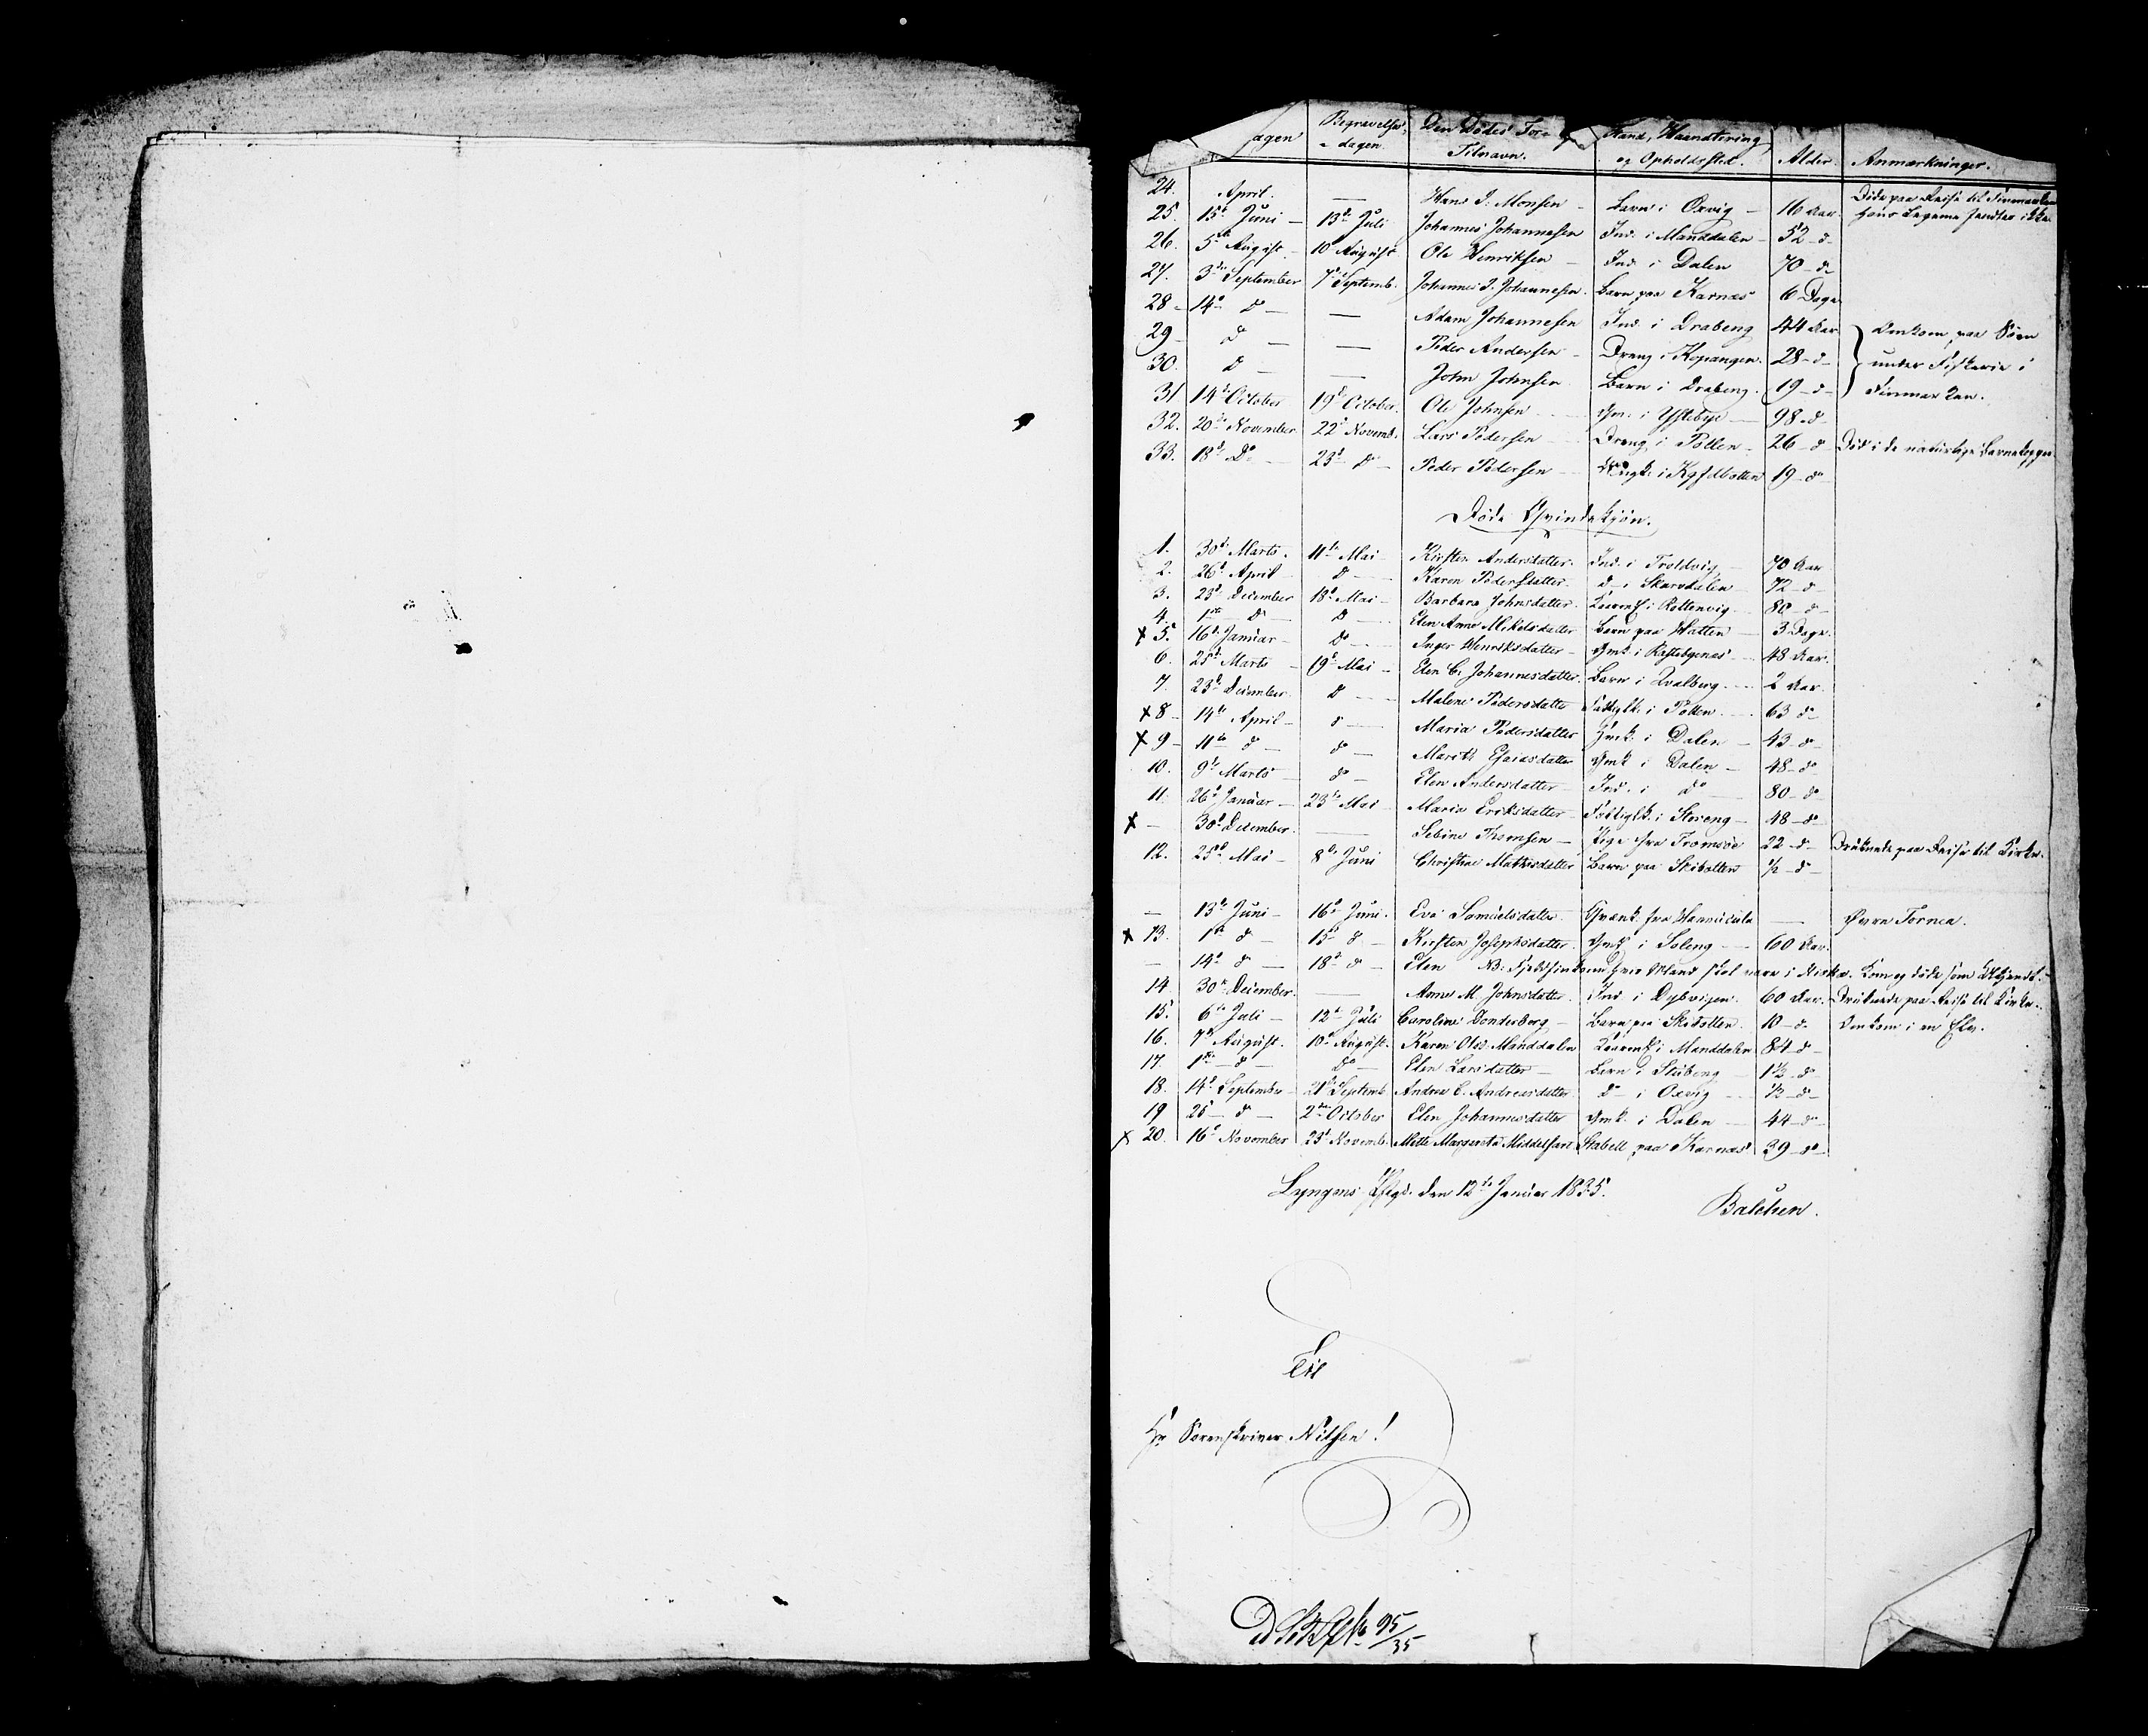 agen Begravelses- dagen. Den Dødes For- og Tilnavn. Stand, Haandtering og Opholdsted. Alder. Anmærkninger.
24. April. — Hans J. Monsen – Barn i Oxvig – 16 Aar. Døde paa Reise til Finmarken
25. 15de Juni – 13de Juli Johannes Johannesen Ind. i Manddalen – 52 – do
26. 5te August – 10 August Ole Henriksen – Ind. i Dalen 70 – do
27. 3die September 7de Septemb. Johannes J. Johannesen. Barn paa Karnæs 6 Dage
28 – 14de do — — Adam Johannesen Ind. i Draberg 44 Aar } Omkom paa Søen
29 – do — — Peder Andersen – Dreng i Kopangen. 28 – do – under Fiskerie i
30. do — — John Johnsen Barn i Draberg. 19 – do – Finmarken.
31 14de October 19de October. Ole Johnsen – i 98 – do –
32. 20de November 22de Novemb. Lars Pedersen Dreng i Pollen – 26 – do Død i de naturlige Børnekopper
33. 18de Do – 23de Do – Peder Pedersen – i 19 – do –
Døde Qvindekjøn.
1. 30de Marts. 11te Mai – Kirsten Andersdatter. Ind. i Troldvig – 70 Aar
2. 26de April – do — Karen Pedersdatter – do – i Skarvdalen – 72 – do
3. 23de December 18de Mai – Barbara Johnsdatter. i Rottenvig – 80 – do –
4. 1ste do — do — Elen Anne Mikelsdatter Barn paa – 3 Dage.
x 5. 16de Januar – do — Inger Henriksdatter – Gmk. i – 48 Aar.
6. 25de Marts – 19de Mai – Elen C. Johannesdatter. Barn i Qvalberg – 2 Aar.
7. 23de December. do — Malene Pedersdatter i Pollen – 63 do –
x 8 – 14de April – do — Maria Pedersdatter Gmk. i Dalen – 43 – do –
x 9 – 11te do — do — Marith Esaiasdatter Gmk. i Dalen – 48 – do
10. 9de Marts – do — Elen Andersdatter – Ind. i do — 80 – do
11. 26de Januar – 23de Mai – Maria Eriksdatter – i Storeng – 48 – do
x – 30de December. — Sebine Thomsen – Pige fra Tromsøe 22 – do – Druknede paa Reise til Kirke.
12. 25de Mai – 8de Juni Christine Mathisdatter Barn paa Skibotten ½ – do –
— 13de Juni – 16de Juni. Eva Samuelsdatter. fra — Øvre Tornea.
x 13. 1ste do — 15de do — Kirsten Josephsdatter. Gmk. i Soleng – 60 Aar.
— 14de do — 18de do — Elen NB: Fjeldfinkone hvis Mand skal være i
14. 30te December. — Anne M. Johnsdatter. Ind. i Dybvigen. 60 Aar. Druknede paa Reise til Kirke.
15. 6te Juli – 12te Juli Caroline Donderborg – Barn paa Skibotten. 10 – do Omkom i en Elv.
16. 7de August. 10de August. Karen Olsd. Manddalen i Manddalen 84 – do –
17. 1ste do — do — Elen Larsdatter – Barn i – 1½ – do
18. 14de September – 21de Septemb. Andrea C. Andreasdatter. do – i Oxvig – ½ – do –
19 25 – do — 2den October Elen Johannesdatter Gmk. i Dalen – 44 – do –
x 20. 16de November 25de Novemb. Mette Margareta Middelfart Stabell paa Karnæs 39 – do –
Lyngens Præstegd. den 12te Januar 1835.
Balchen.
Til
Hr Sorenskriver Nilsen!
95/35